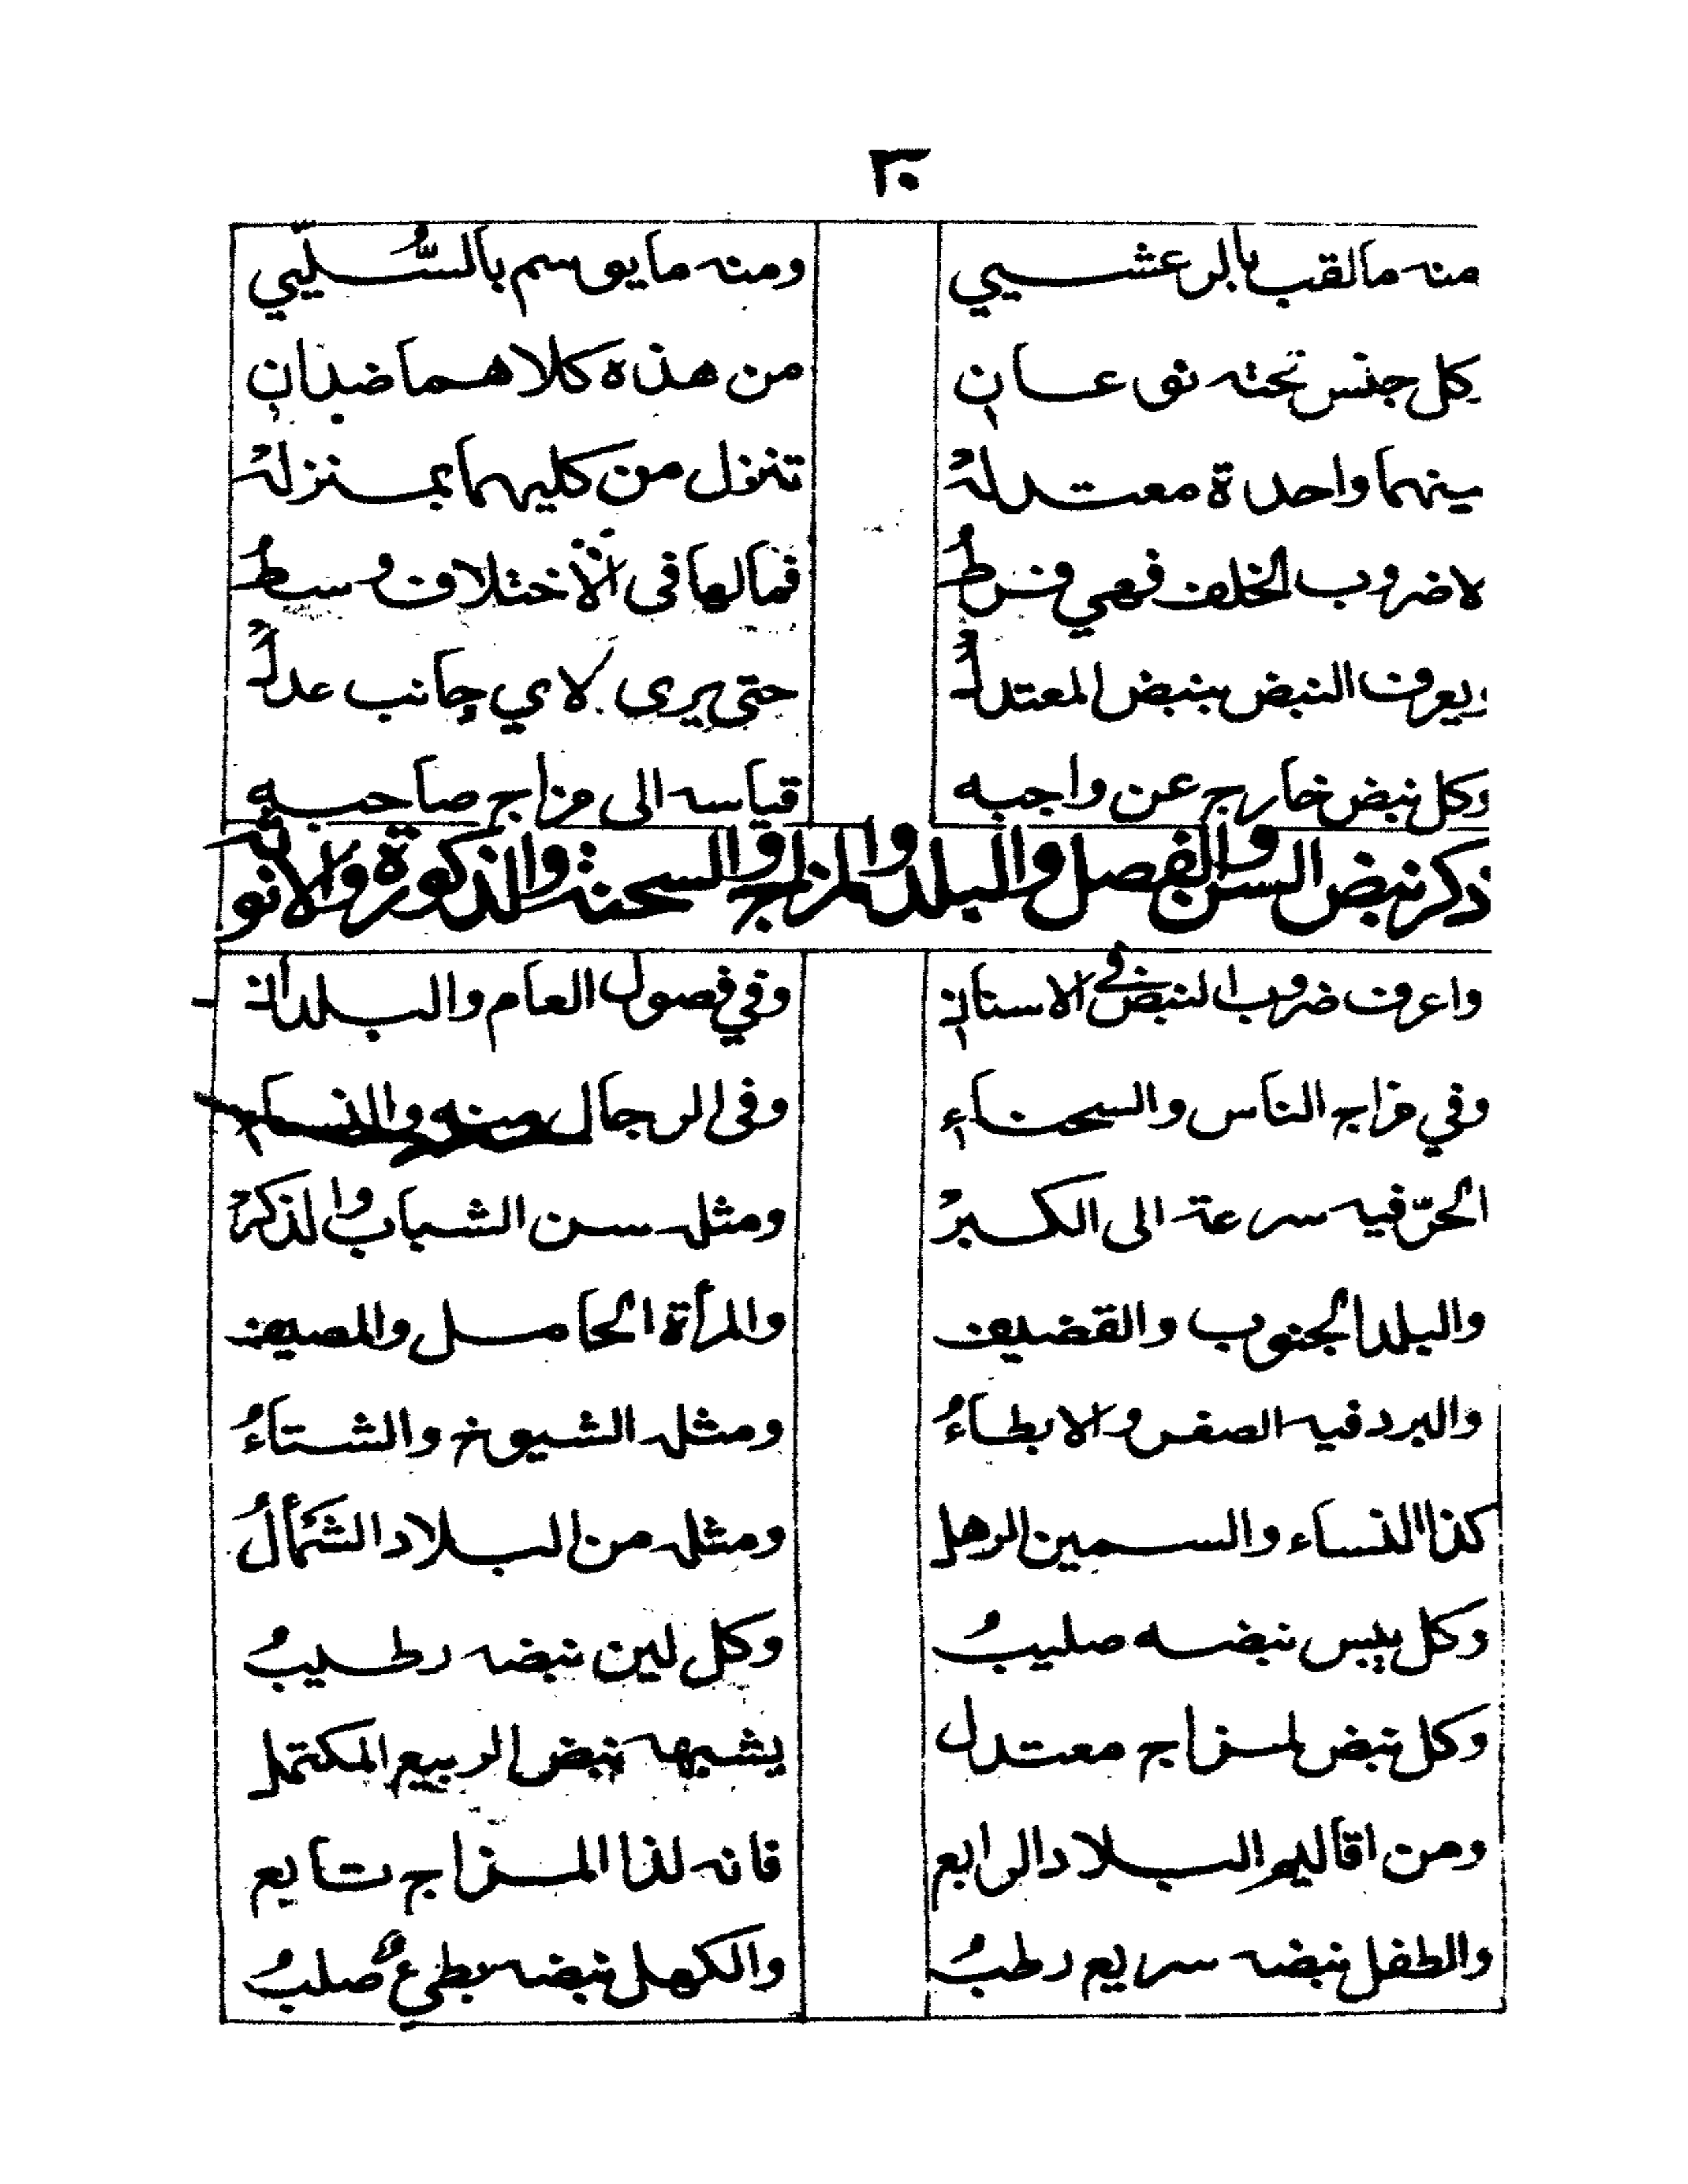 ٣٠
منه مالقب بالرعشيي ومنه مايوسم بالسُّليّي
كل جنس تحته نوعان من هذه كلاهما ضدان
بينهما واحدة معتدلهْ تنزل من كليهما بمنزلهْ
لاضروب الخلف فهي فرطُ فمالها في الاختلاف وسطُ
ويعرف النبض بنبض المعتدلْ حتى يرى لاي جانب عدلْ
وكل نبض خارج عن واجبه قياسه الى مزاج صاحبه
ذكر نبض السن والفصل والبلد والمزاج والسحنة والذكورة والانو
واعرف ضروب النبض في الاسنان وفي فصول العام والبلدان
وفي مزاج الناس والسحناء وفى الرجال منه والنساء
الحرّ فيه سرعة الى الكبرْ ومثله سن الشباب والذكرْ
والبلد الجنوب والقضيف والمرأة الحامل والمصيف
والبرد فيه الصغر والابطاءُ ومثله الشيوخ والشتاءُ
كذا النساء والسمين الرهل ومثله من البلاد الشمألُ
وكل يبس نبضه صليبُ وكل لين نبضه رطيبُ
وكل نبض لمزاج معتدل يشبهه نبض الربيع المكتمل
ومن اقاليم البلاد الرابع فانه لذا المزاج تابع
والطفل نبضه سريع رطبُ والكهل نبضه بطيءٌ صلبُ